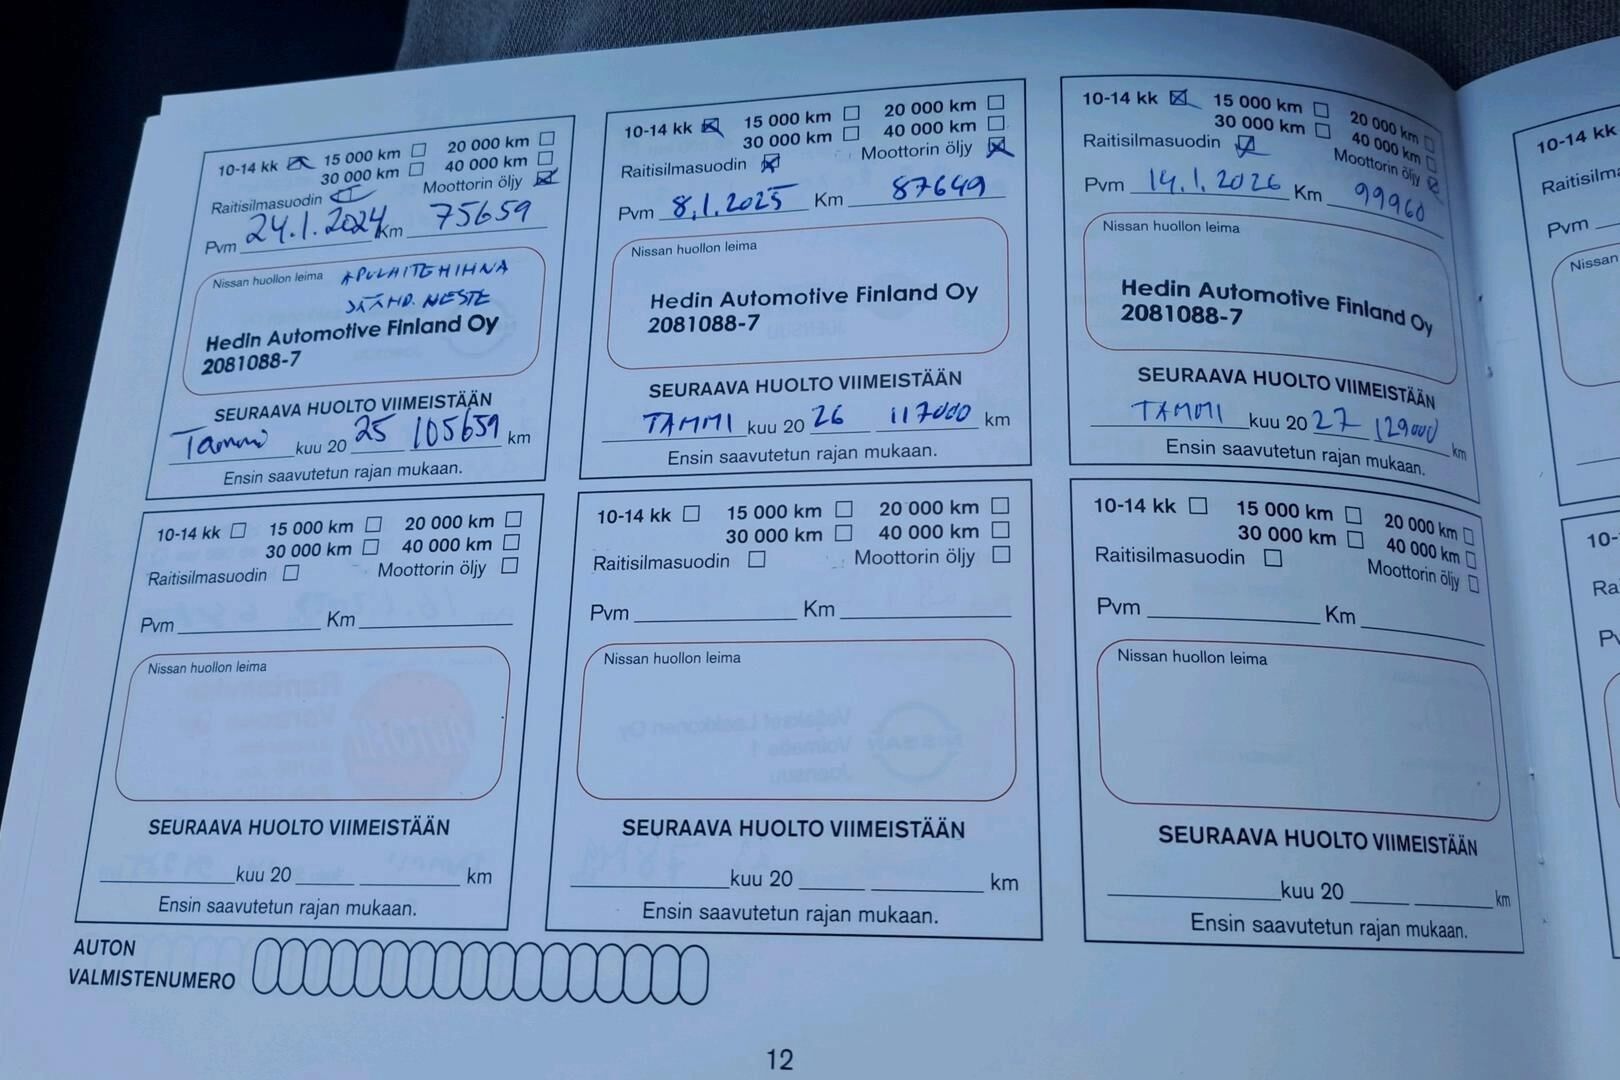 10-14 kk 15 000 km 20 000 km
30 000 km 40 000 km
Raitisilmasuodin Moottorin öljy
Pvm 24.1.2024 Km 75659
Nissan huollon leima APULAITEHIHNA
JÄÄHD. NESTE
Hedin Automotive Finland Oy
2081088-7
SEURAAVA HUOLTO VIIMEISTÄÄN
Tammi kuu 20 25 105659 km
Ensin saavutetun rajan mukaan.
10-14 kk 15 000 km 20 000 km
30 000 km 40 000 km
Raitisilmasuodin Moottorin öljy
Pvm 8.1.2025 Km 87649
Nissan huollon leima
Hedin Automotive Finland Oy
2081088-7
SEURAAVA HUOLTO VIIMEISTÄÄN
TAMMI kuu 20 26 117000 km
Ensin saavutetun rajan mukaan.
10-14 kk 15 000 km 20 000 km
30 000 km 40 000 km
Raitisilmasuodin Moottorin öljy
Pvm 14.1.2026 Km 99960
Nissan huollon leima
Hedin Automotive Finland Oy
2081088-7
SEURAAVA HUOLTO VIIMEISTÄÄN
TAMMI kuu 20 27 129000 km
Ensin saavutetun rajan mukaan.
10-14 kk 15 000 km 20 000 km
30 000 km 40 000 km
Raitisilmasuodin Moottorin öljy
Pvm Km
Nissan huollon leima
SEURAAVA HUOLTO VIIMEISTÄÄN
kuu 20 km
Ensin saavutetun rajan mukaan.
10-14 kk 15 000 km 20 000 km
30 000 km 40 000 km
Raitisilmasuodin Moottorin öljy
Pvm Km
Nissan huollon leima
SEURAAVA HUOLTO VIIMEISTÄÄN
kuu 20 km
Ensin saavutetun rajan mukaan.
10-14 kk 15 000 km 20 000 km
30 000 km 40 000 km
Raitisilmasuodin Moottorin öljy
Pvm Km
Nissan huollon leima
SEURAAVA HUOLTO VIIMEISTÄÄN
kuu 20 km
Ensin saavutetun rajan mukaan.
AUTON
VALMISTENUMERO
12
10-14 kk
Pvm
Nissan